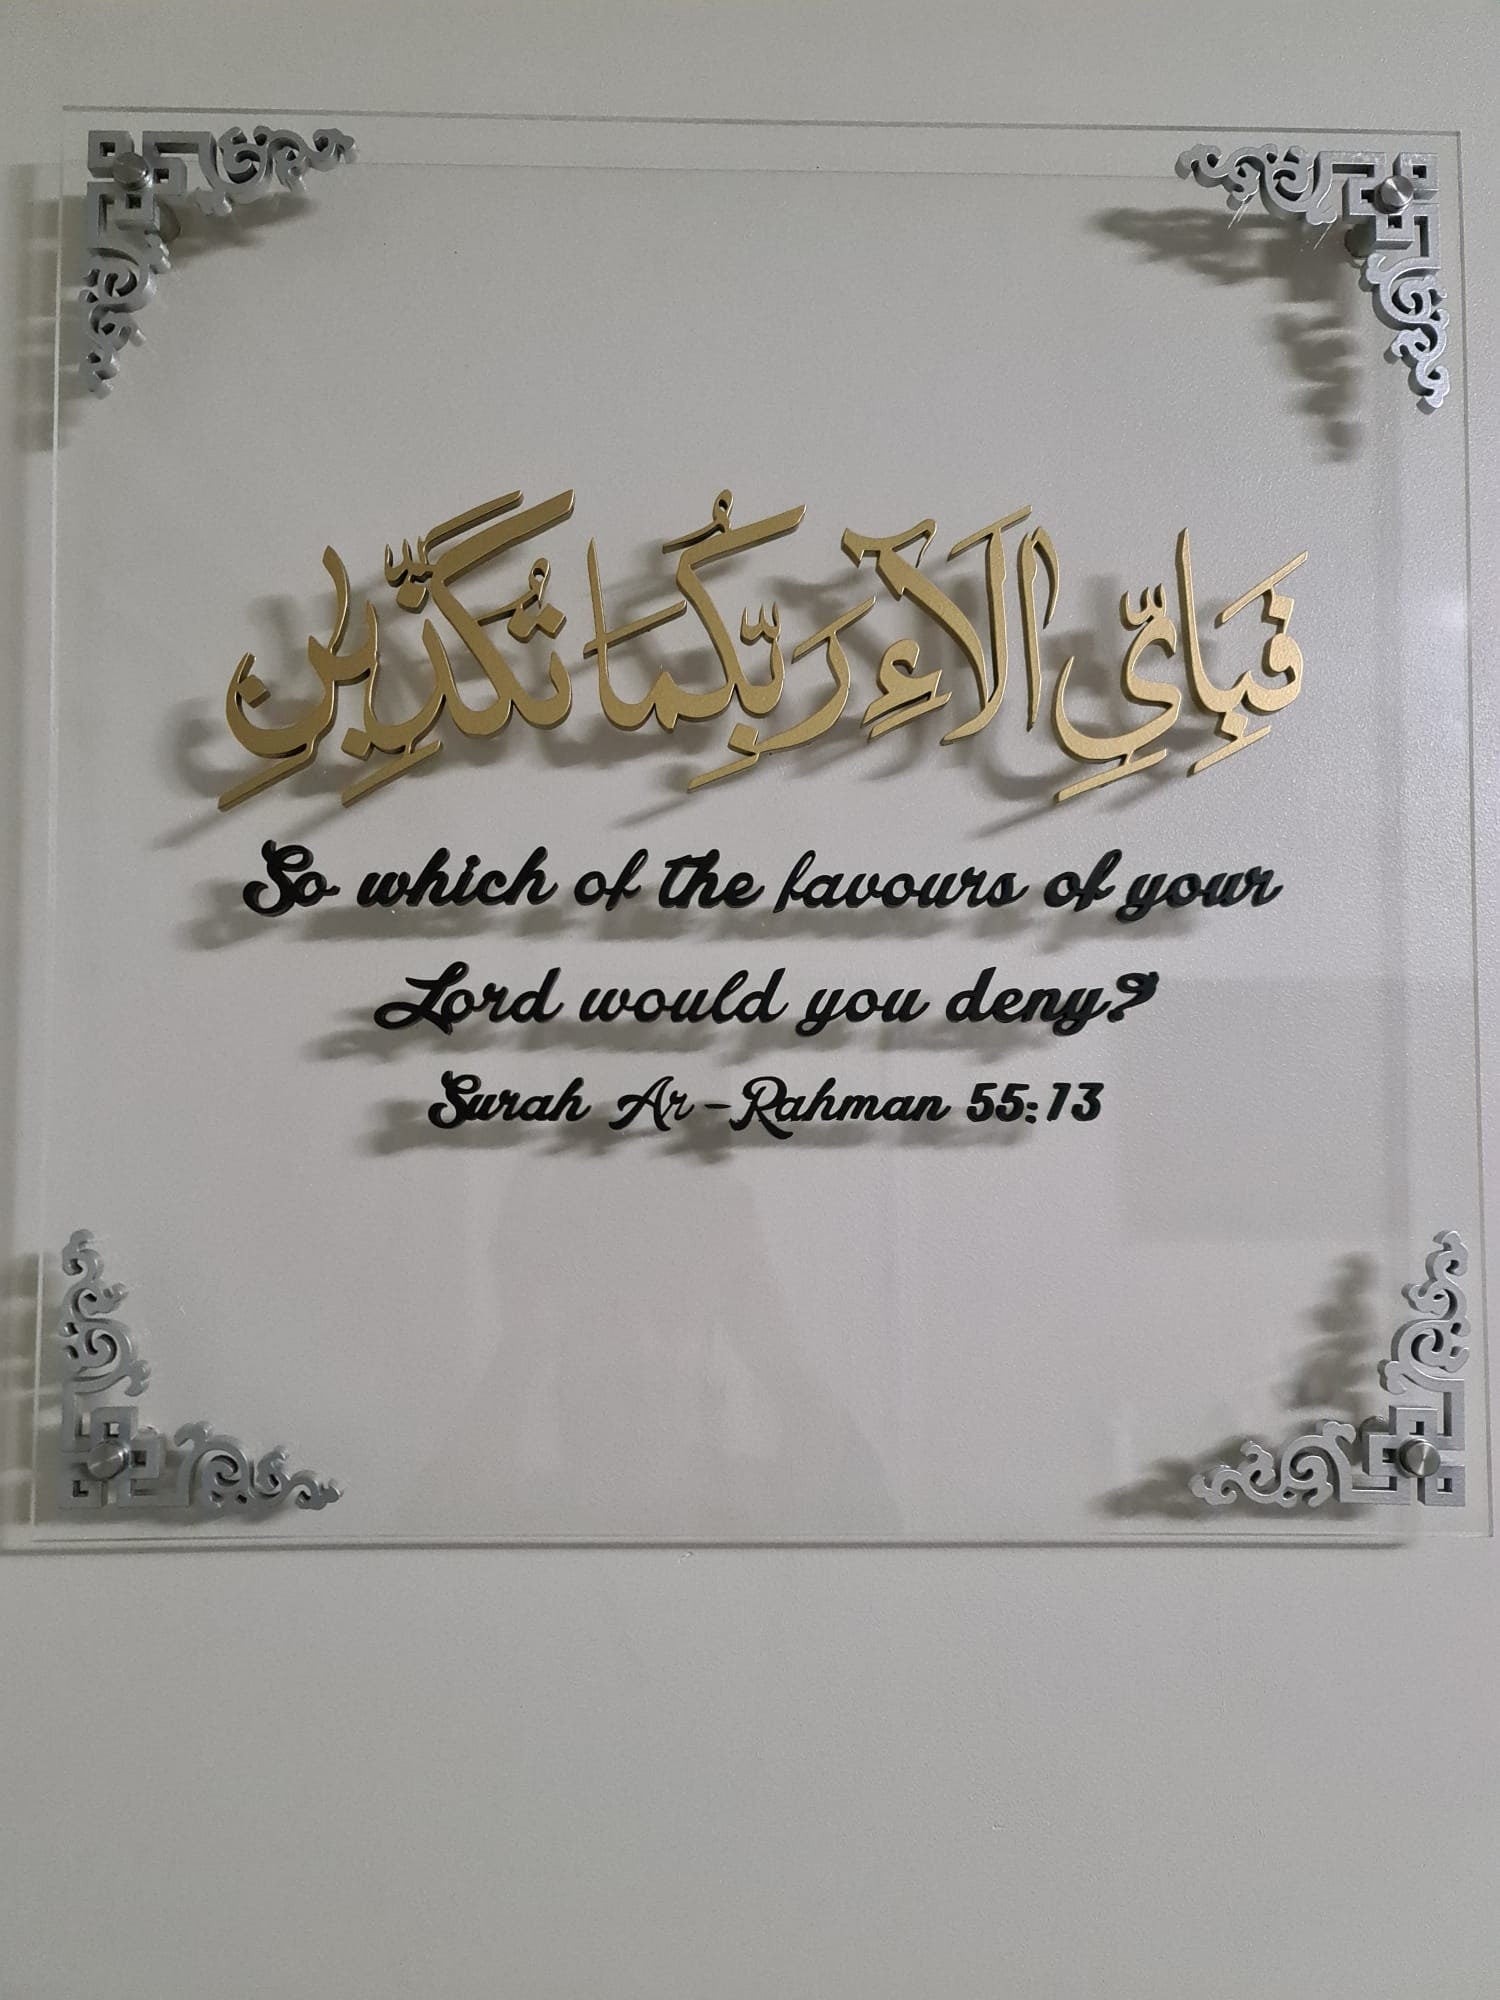 فَبِاَيِّ اٰلَآءِ رَبِّكُمَا تُكَذِّبٰنِ
So which of the favours of your
Lord would you deny?
Surah Ar-Rahman 55:13